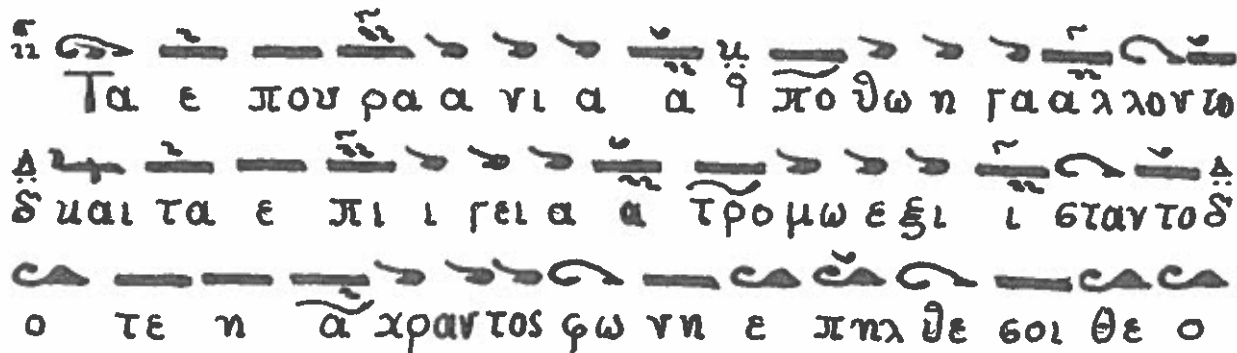 Τα ε που ρα α νι α α πο θω η γα α λ λον το
και τα ε πι ι γει α α τρο μω ε ξι ι σταν το
ο τε η α χραν τος φω νη ε πηλ θε σοι Θε ο